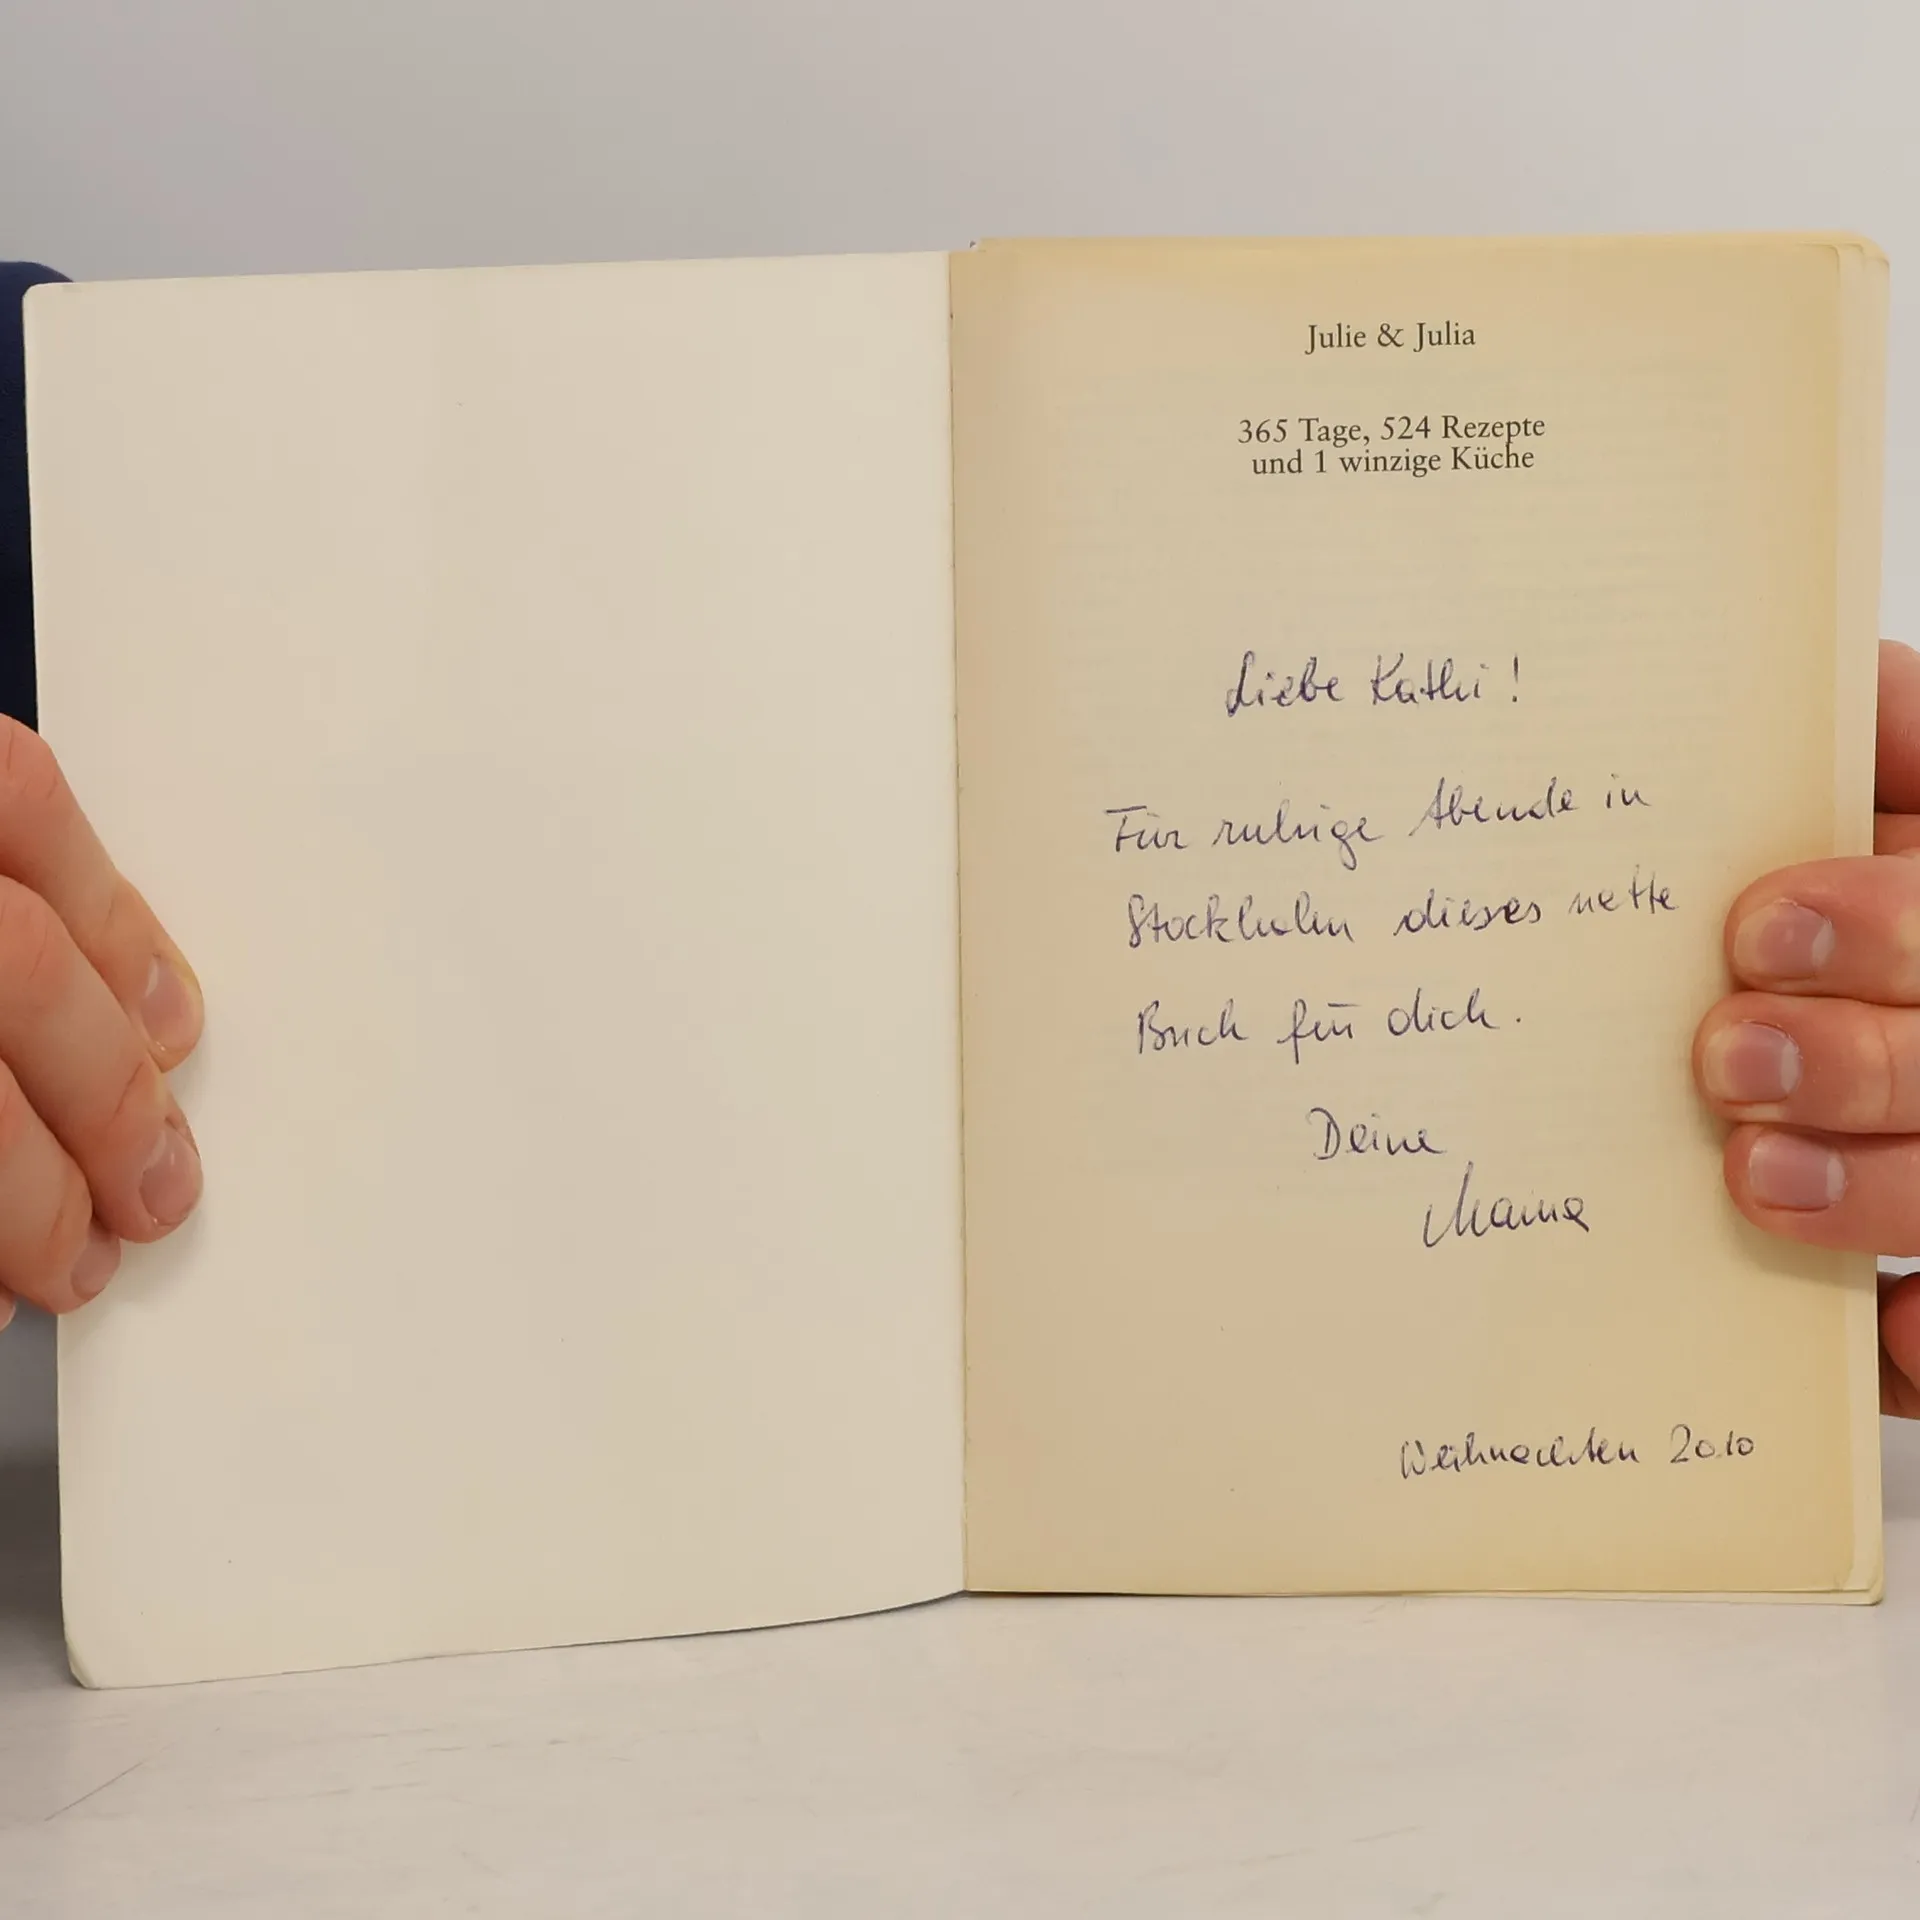 Julie & Julia
365 Tage, 524 Rezepte
und 1 winzige Küche
Liebe Kathi!
Für ruhige Abende in
Stockholm dieses nette
Buch für dich.
Deine
Mama
Weihnachten 2010